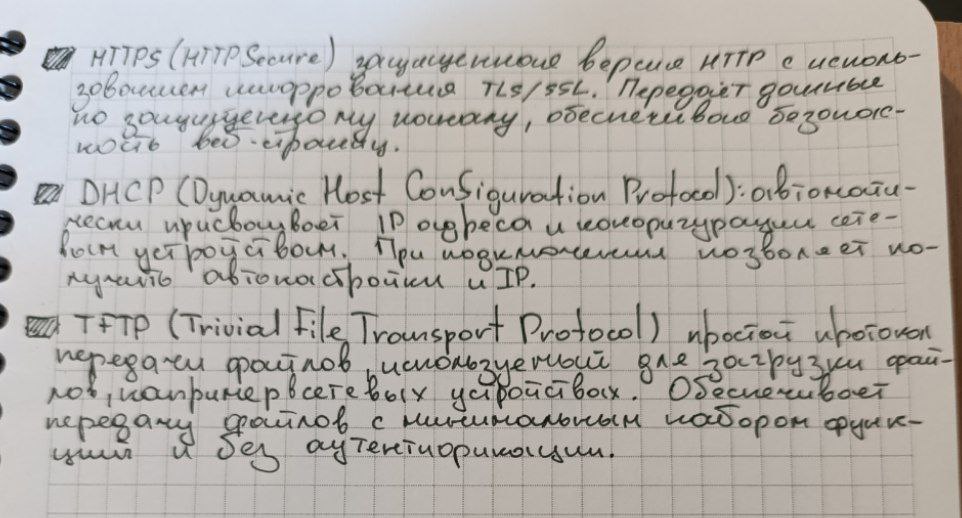 HTTPS (HTTP Secure) защищенная версия HTTP с исполь-
зованием шифрования TLS/SSL. Передаёт данные
по защищенному каналу, обеспечивая безопас-
ность веб-страниц.
DHCP (Dynamic Host Configuration Protocol): автомати-
чески присваивает IP адреса и конфигурации сете-
вым устройствам. При подключении позволяет по-
лучить автонастройки и IP.
TFTP (Trivial File Transport Protocol) простой протокол
передачи файлов, используемый для загрузки фай-
лов, например в сетевых устройствах. Обеспечивает
передачу файлов с минимальным набором функ-
ций и без аутентификации.